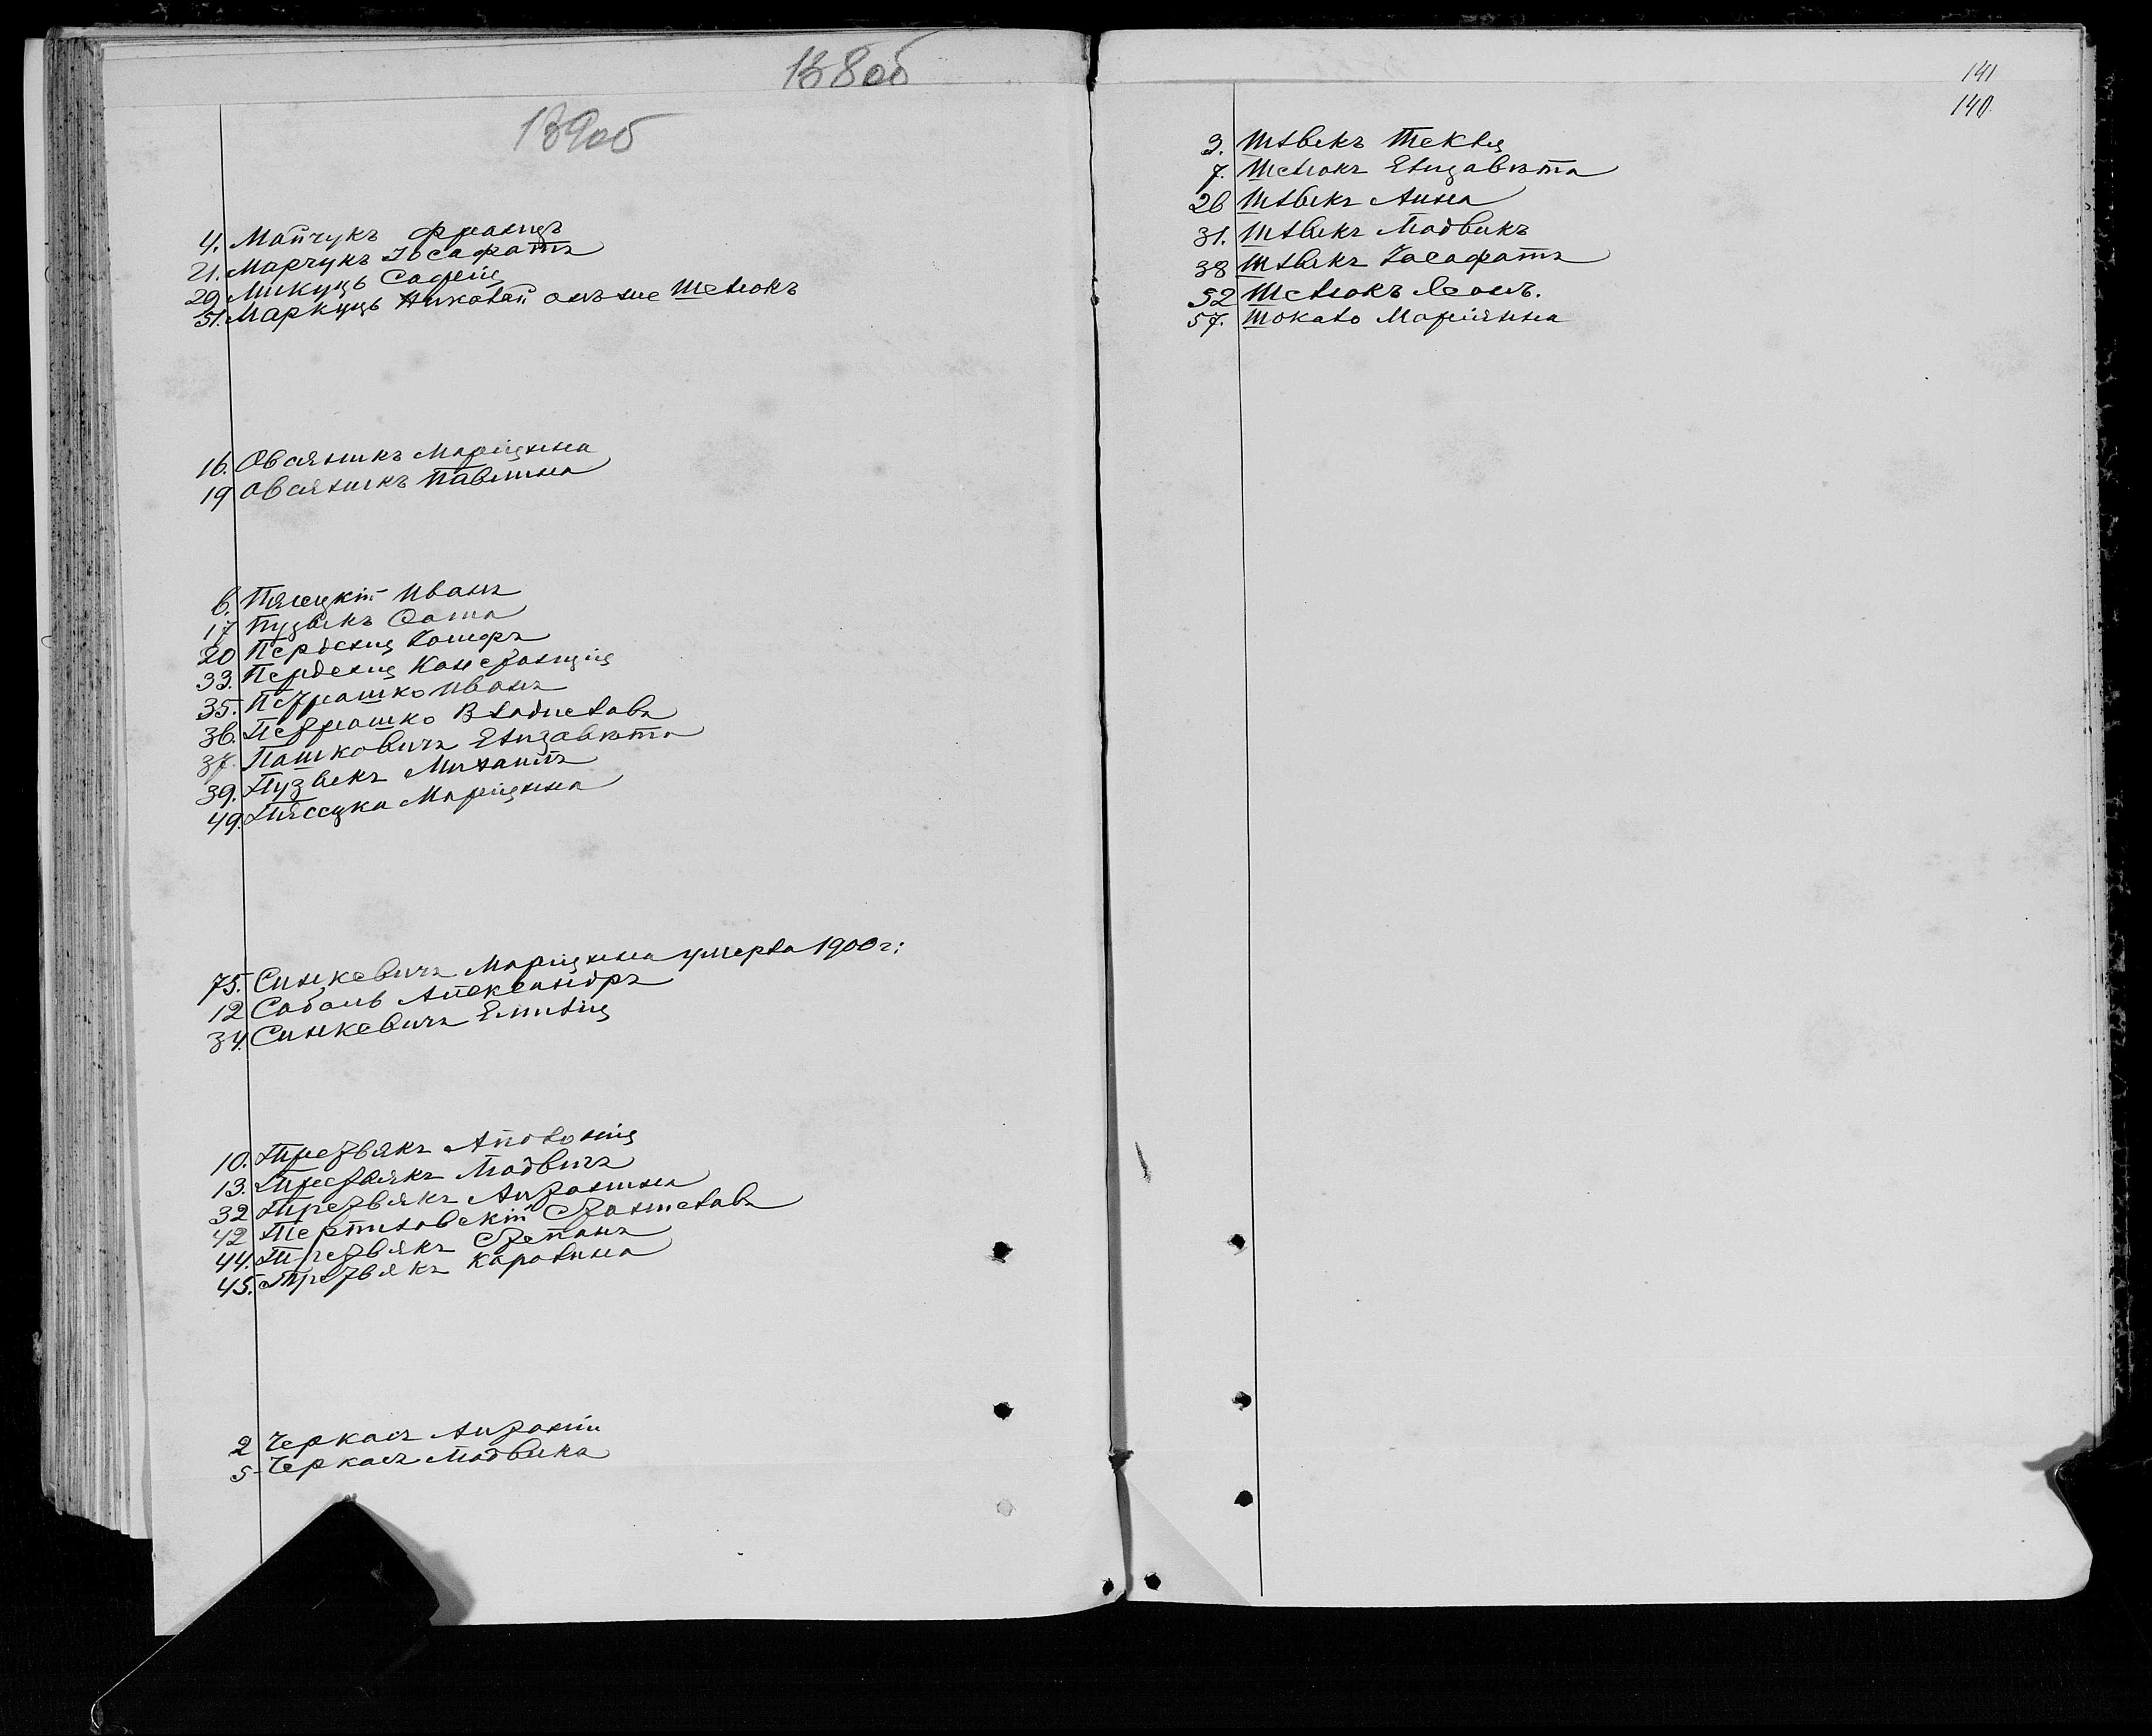 138об
139об
4. Манчукъ Францъ
21. Марчукъ Іосафатъ
29 Микуць Софія
51. Маркуць Николай онъ же Шелюкъ
16. Овсяникъ Маріянна
19 Овсяникъ Павлина
6. Пясецкій Иванъ
17 Пузыкъ
20 Перденя Іосифъ
33. Перденя Констанція
35. Петрашко Иванъ
36. Петрашко Владиславъ
37. Пашковичъ Елизавѣта
39. Пузыкъ Михаилъ
49. Пясецка Маріянна
75. Синкевичъ Маріянна умерла 1900 г:
12 Соболь Александръ
34. Синкевичъ Емилія
10. Трезвякъ Аполонія
13. Трезвякъ Людвигъ
32 Трезвякъ Антонина
42 Станиславъ
44. Трезвякъ Степанъ
45. Трезвякъ Каролина
2 Черкасъ Антоній
5 Черкасъ Людвика
141
140
3. Шлыкъ Текля
7. Шелюкъ Елизавѣта
26 Шлыкъ Анна
31. Шлыкъ Людвикъ
38 Шлыкъ Іосафатъ
52 Шелюкъ Леонъ.
57. Шокало Маріянна